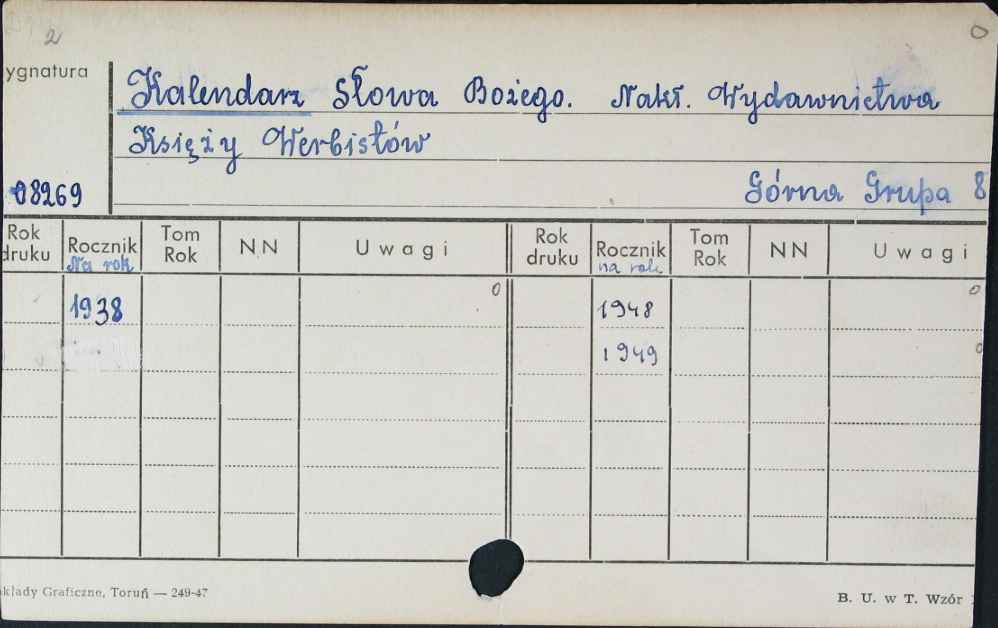 2
0
ygnatura
Kalendarz Słowa Bożego. Nakł. Wydawnictwa
Księży Werbistów
08269
Górna Grupa 8
Rok druku Rocznik Na rok Tom Rok NN Uwagi Rok druku Rocznik na rok Tom Rok NN Uwagi
1938 0 1948 0
1949 0
kłady Graficzne, Toruń — 249-47
B. U. w T. Wzór